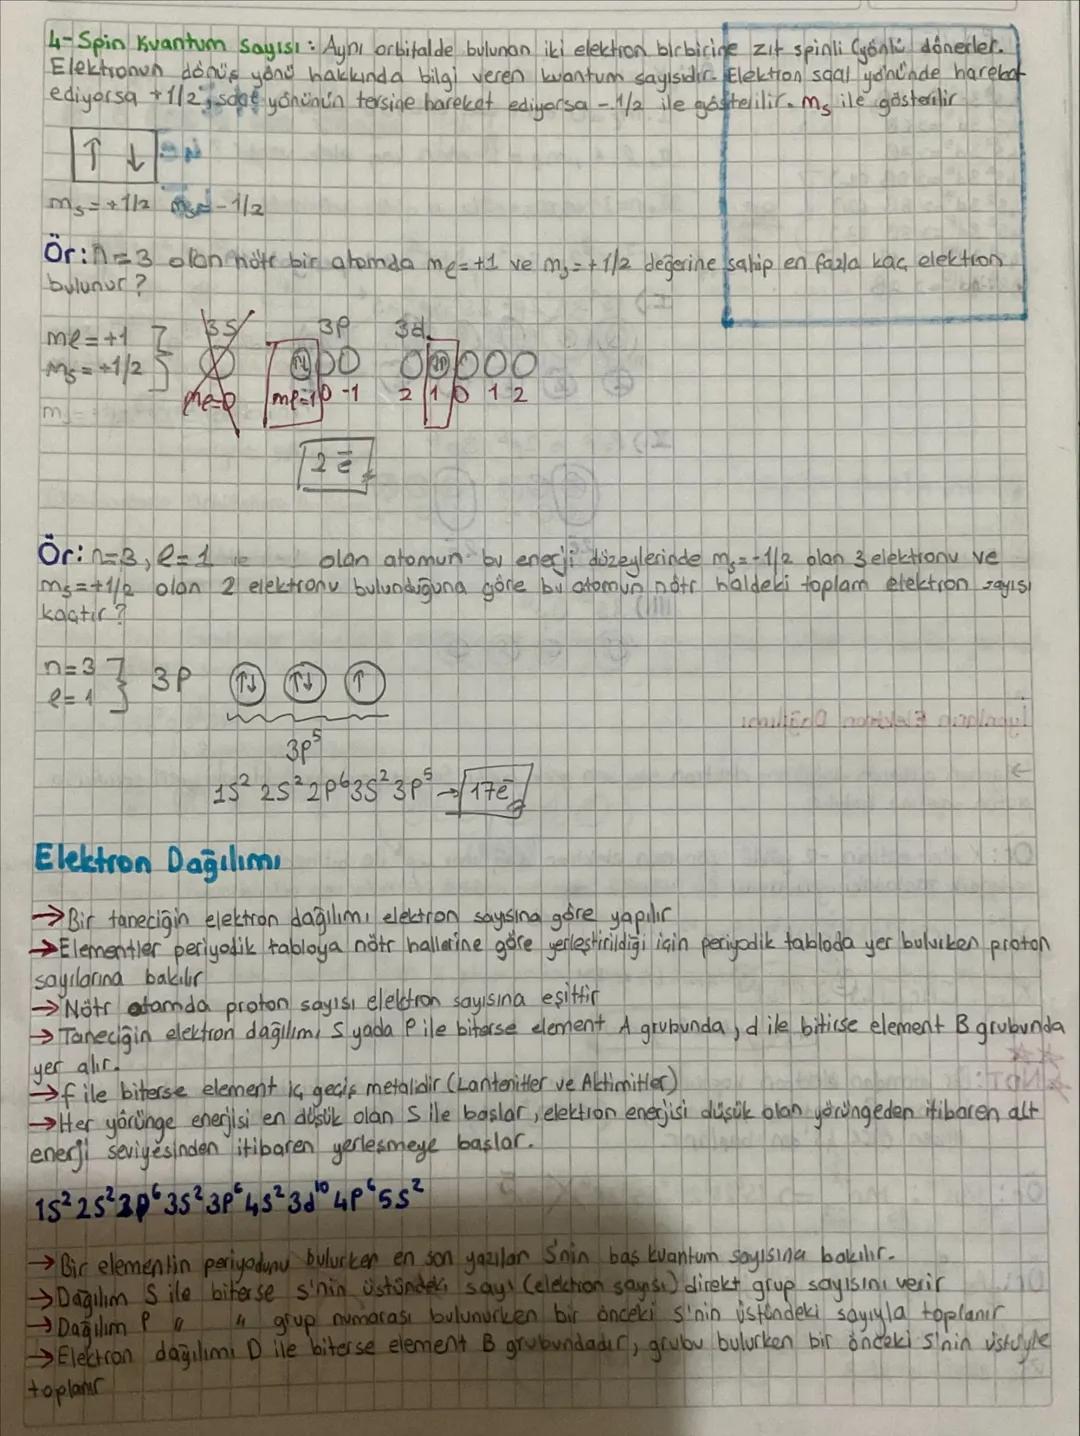 4-Spin Kuantum Sayısı: Aynı orbitalde bulunan iki elektron birbirine zıt spinli (yönlü) dönerler.
Elektronun dönüş yönü hakkında bilgi veren kuantum sayısıdır. Elektron saat yönünde hareket
ediyorsa +1/2, saat yönünün tersine hareket ediyorsa -1/2 ile gösterilir. ms ile gösterilir
↑ ↓
ms=+1/2 ms=-1/2
Ör: n=3 olan nötr bir atomda mℓ=+1 ve ms=+1/2 değerine sahip en fazla kaç elektron
bulunur?
mℓ=+1 3s 3p 3d
ms=+1/2
mℓ=0 mℓ=1 0 -1 2 1 0 1 2
2 ē
Ör: n=3, ℓ=1 olan atomun bu enerji düzeylerinde ms=-1/2 olan 3 elektronu ve
ms=+1/2 olan 2 elektronu bulunduğuna göre bu atomun nötr haldeki toplam elektron sayısı
kaçtır?
n=3
ℓ=1 } 3P ↑↓ ↑↓ ↑
3p⁵
1s² 2s² 2p⁶ 3s² 3p⁵ → 17ē
Elektron Dağılımı
→ Bir taneciğin elektron dağılımı elektron sayısına göre yapılır
→ Elementler periyodik tabloya nötr hallerine göre yerleştirildiği için periyodik tabloda yer bulurken proton
sayılarına bakılır
→ Nötr atomda proton sayısı elektron sayısına eşittir
→ Taneciğin elektron dağılımı S yada P ile biterse element A grubunda, d ile bitirse element B grubunda
yer alır.
→ f ile biterse element iç geçiş metalidir (Lantenitler ve Aktimitler)
→ Her yörünge enerjisi en düşük olan S ile başlar, elektron enerjisi düşük olan yörüngeden itibaren alt
enerji seviyesinden itibaren yerleşmeye başlar.
1s² 2s² 2p⁶ 3s² 3p⁶ 4s² 3d¹⁰ 4p⁶ 5s²
→ Bir elementin periyodunu bulurken en son yazılan S'nin baş kuantum sayısına bakılır.
→ Dağılım S ile biterse s'nin üstündeki sayı (elektron sayısı) direkt grup sayısını verir
→ Dağılım P " " grup numarası bulunurken bir önceki s'nin üstündeki sayıyla toplanır
→ Elektron dağılımı D ile biterse element B grubundadır, grubu bulurken bir önceki S'nin üstüyle
toplanır